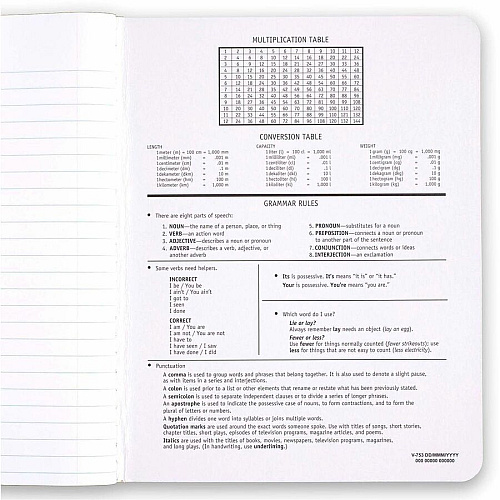 MULTIPLICATION TABLE
1 2 3 4 5 6 7 8 9 10 11 12
2 4 6 8 10 12 14 16 18 20 22 24
3 6 9 12 15 18 21 24 27 30 33 36
4 8 12 16 20 24 28 32 36 40 44 48
5 10 15 20 25 30 35 40 45 50 55 60
6 12 18 24 30 36 42 48 54 60 66 72
7 14 21 28 35 42 49 56 63 70 77 84
8 16 24 32 40 48 56 64 72 80 88 96
9 18 27 36 45 54 63 72 81 90 99 108
10 20 30 40 50 60 70 80 90 100 110 120
11 22 33 44 55 66 77 88 99 110 121 132
12 24 36 48 60 72 84 96 108 120 132 144
CONVERSION TABLE
LENGTH
1 meter (m) = 100 cm = 1,000 mm
1 millimeter (mm) = .001 m
1 centimeter (cm) = .01 m
1 decimeter (dm) = .1 m
1 dekameter (dkm) = 10 m
1 hectometer (hm) = 100 m
1 kilometer (km) = 1,000 m
CAPACITY
1 liter (l) = 100 cl = 1,000 ml
1 milliliter (ml) = .001 l
1 centiliter (cl) = .01 l
1 deciliter (dl) = .1 l
1 dekaliter (dkl) = 10 l
1 hectoliter (hl) = 100 l
1 kiloliter (kl) = 1,000 l
WEIGHT
1 gram (g) = 100 cg = 1,000 mg
1 milligram (mg) = .001 g
1 centigram (cg) = .01 g
1 decigram (dg) = .1 g
1 dekagram (dkg) = 10 g
1 hectogram (hg) = 100 g
1 kilogram (kg) = 1,000 g
GRAMMAR RULES
• There are eight parts of speech:
1. NOUN—the name of a person, place, or thing
2. VERB—an action word
3. ADJECTIVE—describes a noun or pronoun
4. ADVERB—describes a verb, adjective, or
another adverb
5. PRONOUN—substitutes for a noun
6. PREPOSITION—connects a noun or pronoun
to another part of the sentence
7. CONJUNCTION—connects words or ideas
8. INTERJECTION—an exclamation
• Some verbs need helpers.
INCORRECT
I be / You be
I ain't / You ain't
I got to
I seen
I done
CORRECT
I am / You are
I am not / You are not
I have to
I have seen / I saw
I have done / I did
• Its is possessive. It's means "it is" or "it has."
Your is possessive. You're means "you are."
• Which word do I use?
Lie or lay?
Always remember lay needs an object (lay an egg).
Fewer or less?
Use fewer for things normally counted (fewer strikeouts); use
less for things that are not easy to count (less electricity).
• Punctuation
A comma is used to group words and phrases that belong together. It is also used to denote a slight pause,
as with items in a series and interjections.
A colon is used prior to a list or other elements that rename or restate what has been previously stated.
A semicolon is used to separate independent clauses or to divide a series of longer phrases.
An apostrophe is used to indicate the possessive case of nouns, to form contractions, and to form the
plural of letters or numbers.
A hyphen divides one word into syllables or joins multiple words.
Quotation marks are used around the exact words someone spoke. Use with titles of songs, short stories,
chapter titles, short plays, episodes of television programs, magazine articles, and poems.
Italics are used with the titles of books, movies, newspapers, television programs, magazines,
and long plays. (In handwriting, use underlining.)
V-753 DD/MMM/YYYY
000 00000 000000